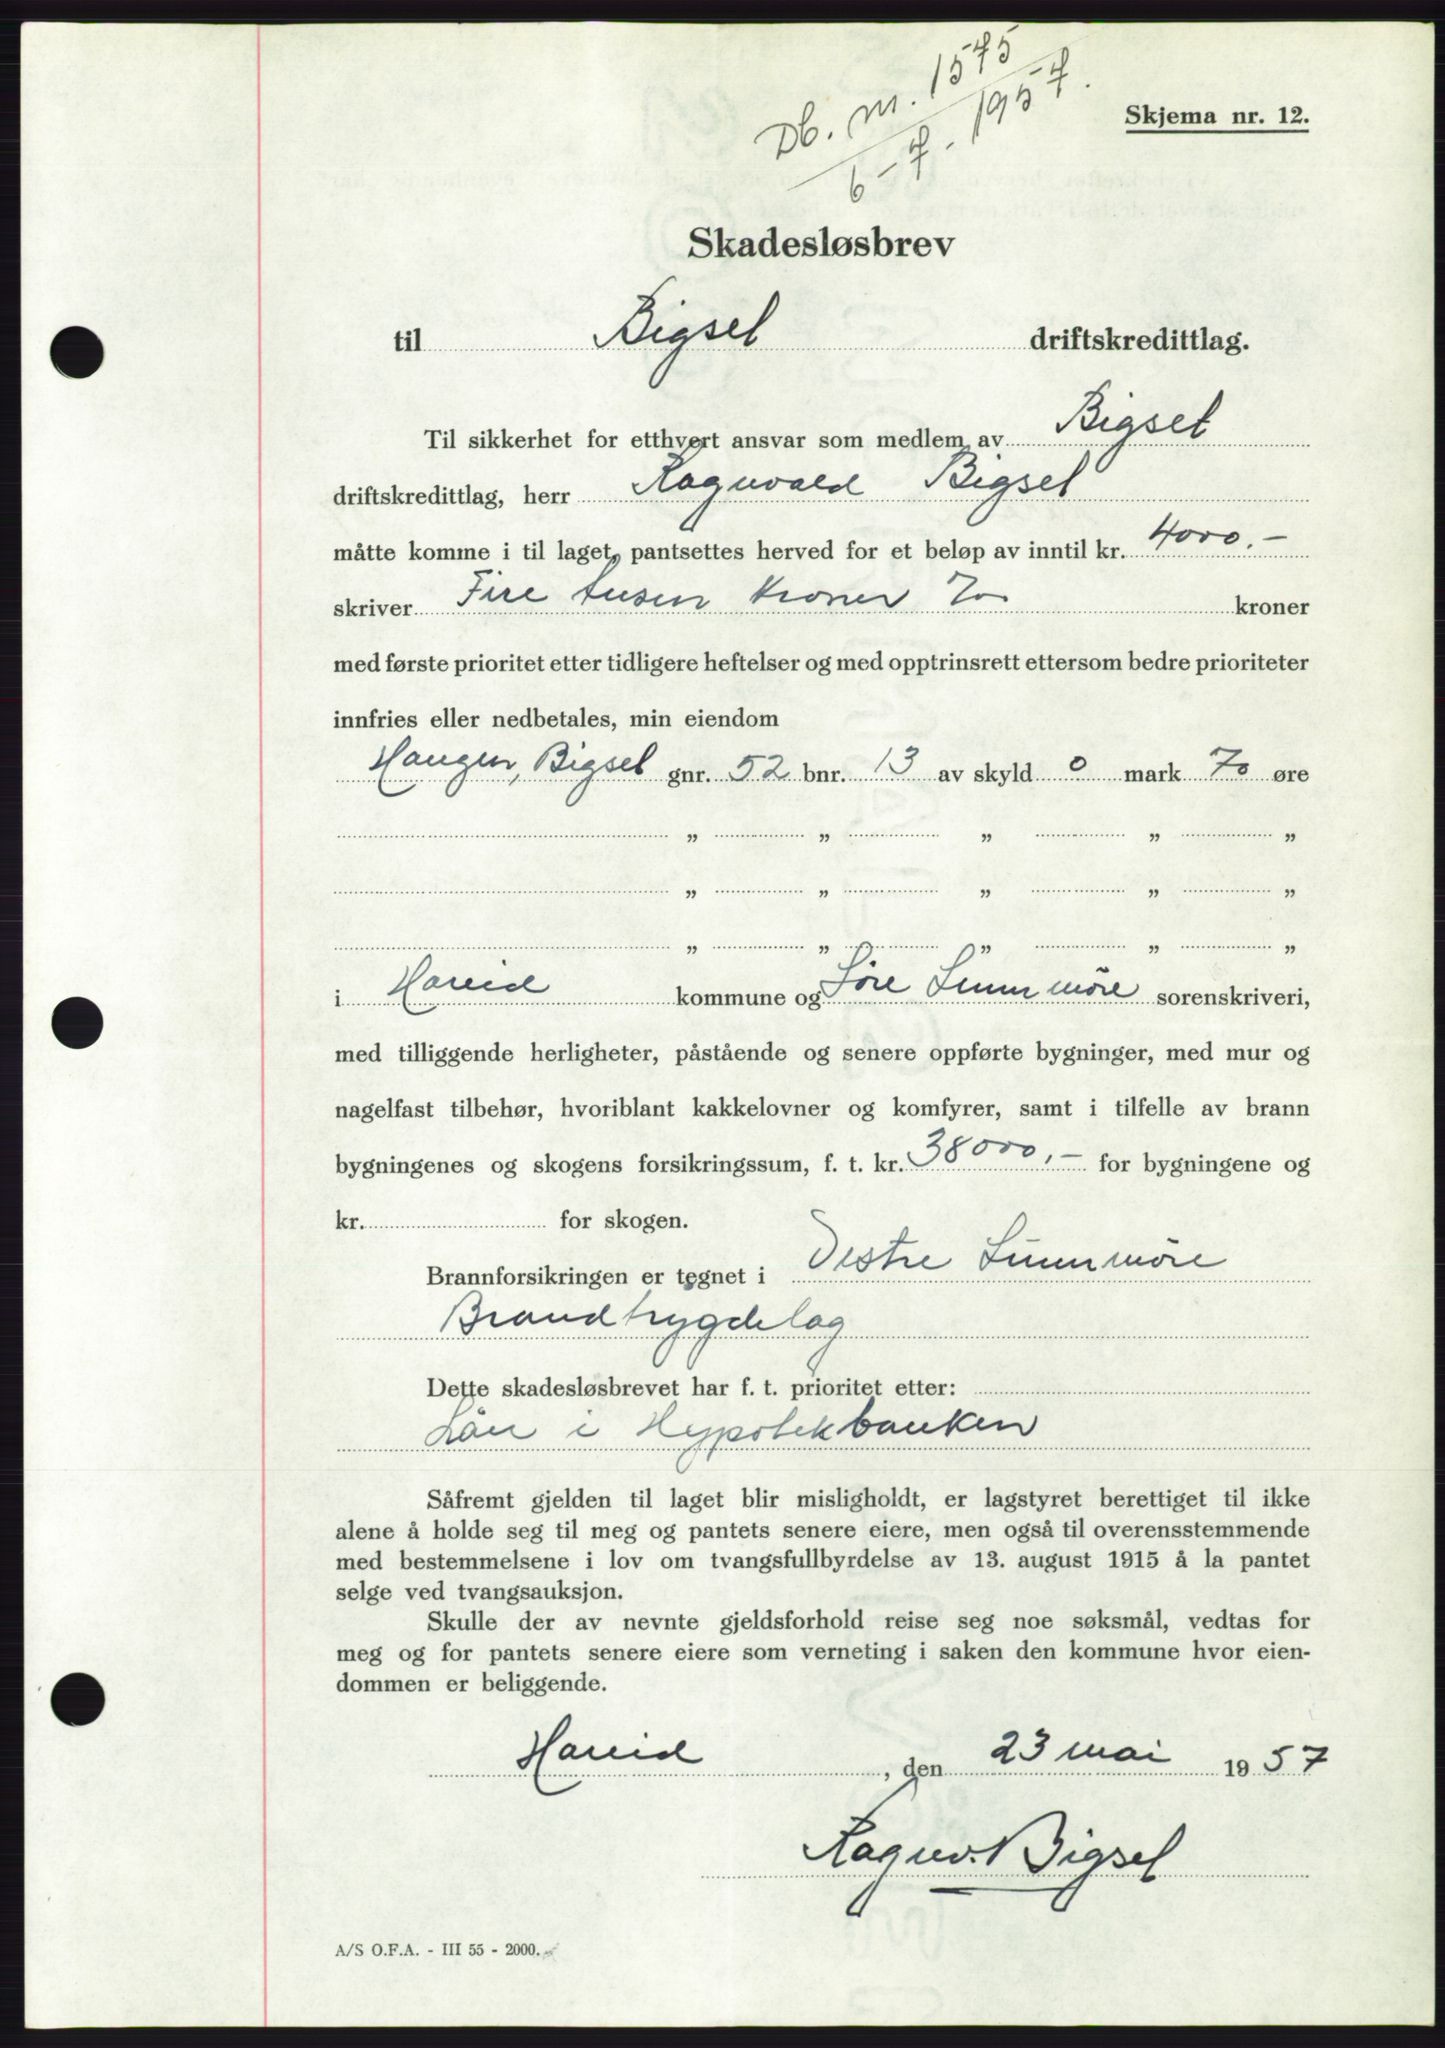 Db. nr. 1575
6 - 7 - 1957.
Skjema nr. 12.
Skadesløsbrev
til Bigset driftskredittlag.
Til sikkerhet for etthvert ansvar som medlem av Bigset
driftskredittlag, herr Ragnvald Bigset
måtte komme i til laget, pantsettes herved for et beløp av inntil kr. 4000.-
skriver Fire tusen kroner kroner
med første prioritet etter tidligere heftelser og med opptrinsrett ettersom bedre prioriteter
innfries eller nedbetales, min eiendom
Haugen, Bigset gnr. 52 bnr. 13 av skyld 0 mark 70 øre
„ „ „ „ „
„ „ „ „ „
„ „ „ „ „
i Hareid kommune og Søre Sunnmøre sorenskriveri,
med tilliggende herligheter, påstående og senere oppførte bygninger, med mur og
nagelfast tilbehør, hvoriblant kakkelovner og komfyrer, samt i tilfelle av brann
bygningenes og skogens forsikringssum, f. t. kr. 38000,- for bygningene og
kr. for skogen.
Brannforsikringen er tegnet i Vestre Sunnmøre
Brandtrygdelag
Dette skadesløsbrevet har f. t. prioritet etter:
Lån i Hypotekbanken
Såfremt gjelden til laget blir misligholdt, er lagstyret berettiget til ikke
alene å holde seg til meg og pantets senere eiere, men også til overensstemmende
med bestemmelsene i lov om tvangsfullbyrdelse av 13. august 1915 å la pantet
selge ved tvangsauksjon.
Skulle der av nevnte gjeldsforhold reise seg noe søksmål, vedtas for
meg og for pantets senere eiere som verneting i saken den kommune hvor eien-
dommen er beliggende.
Hareid, den 23 mai 1957
Ragnv. Bigset
A/S O.F.A. - III 55 - 2000.